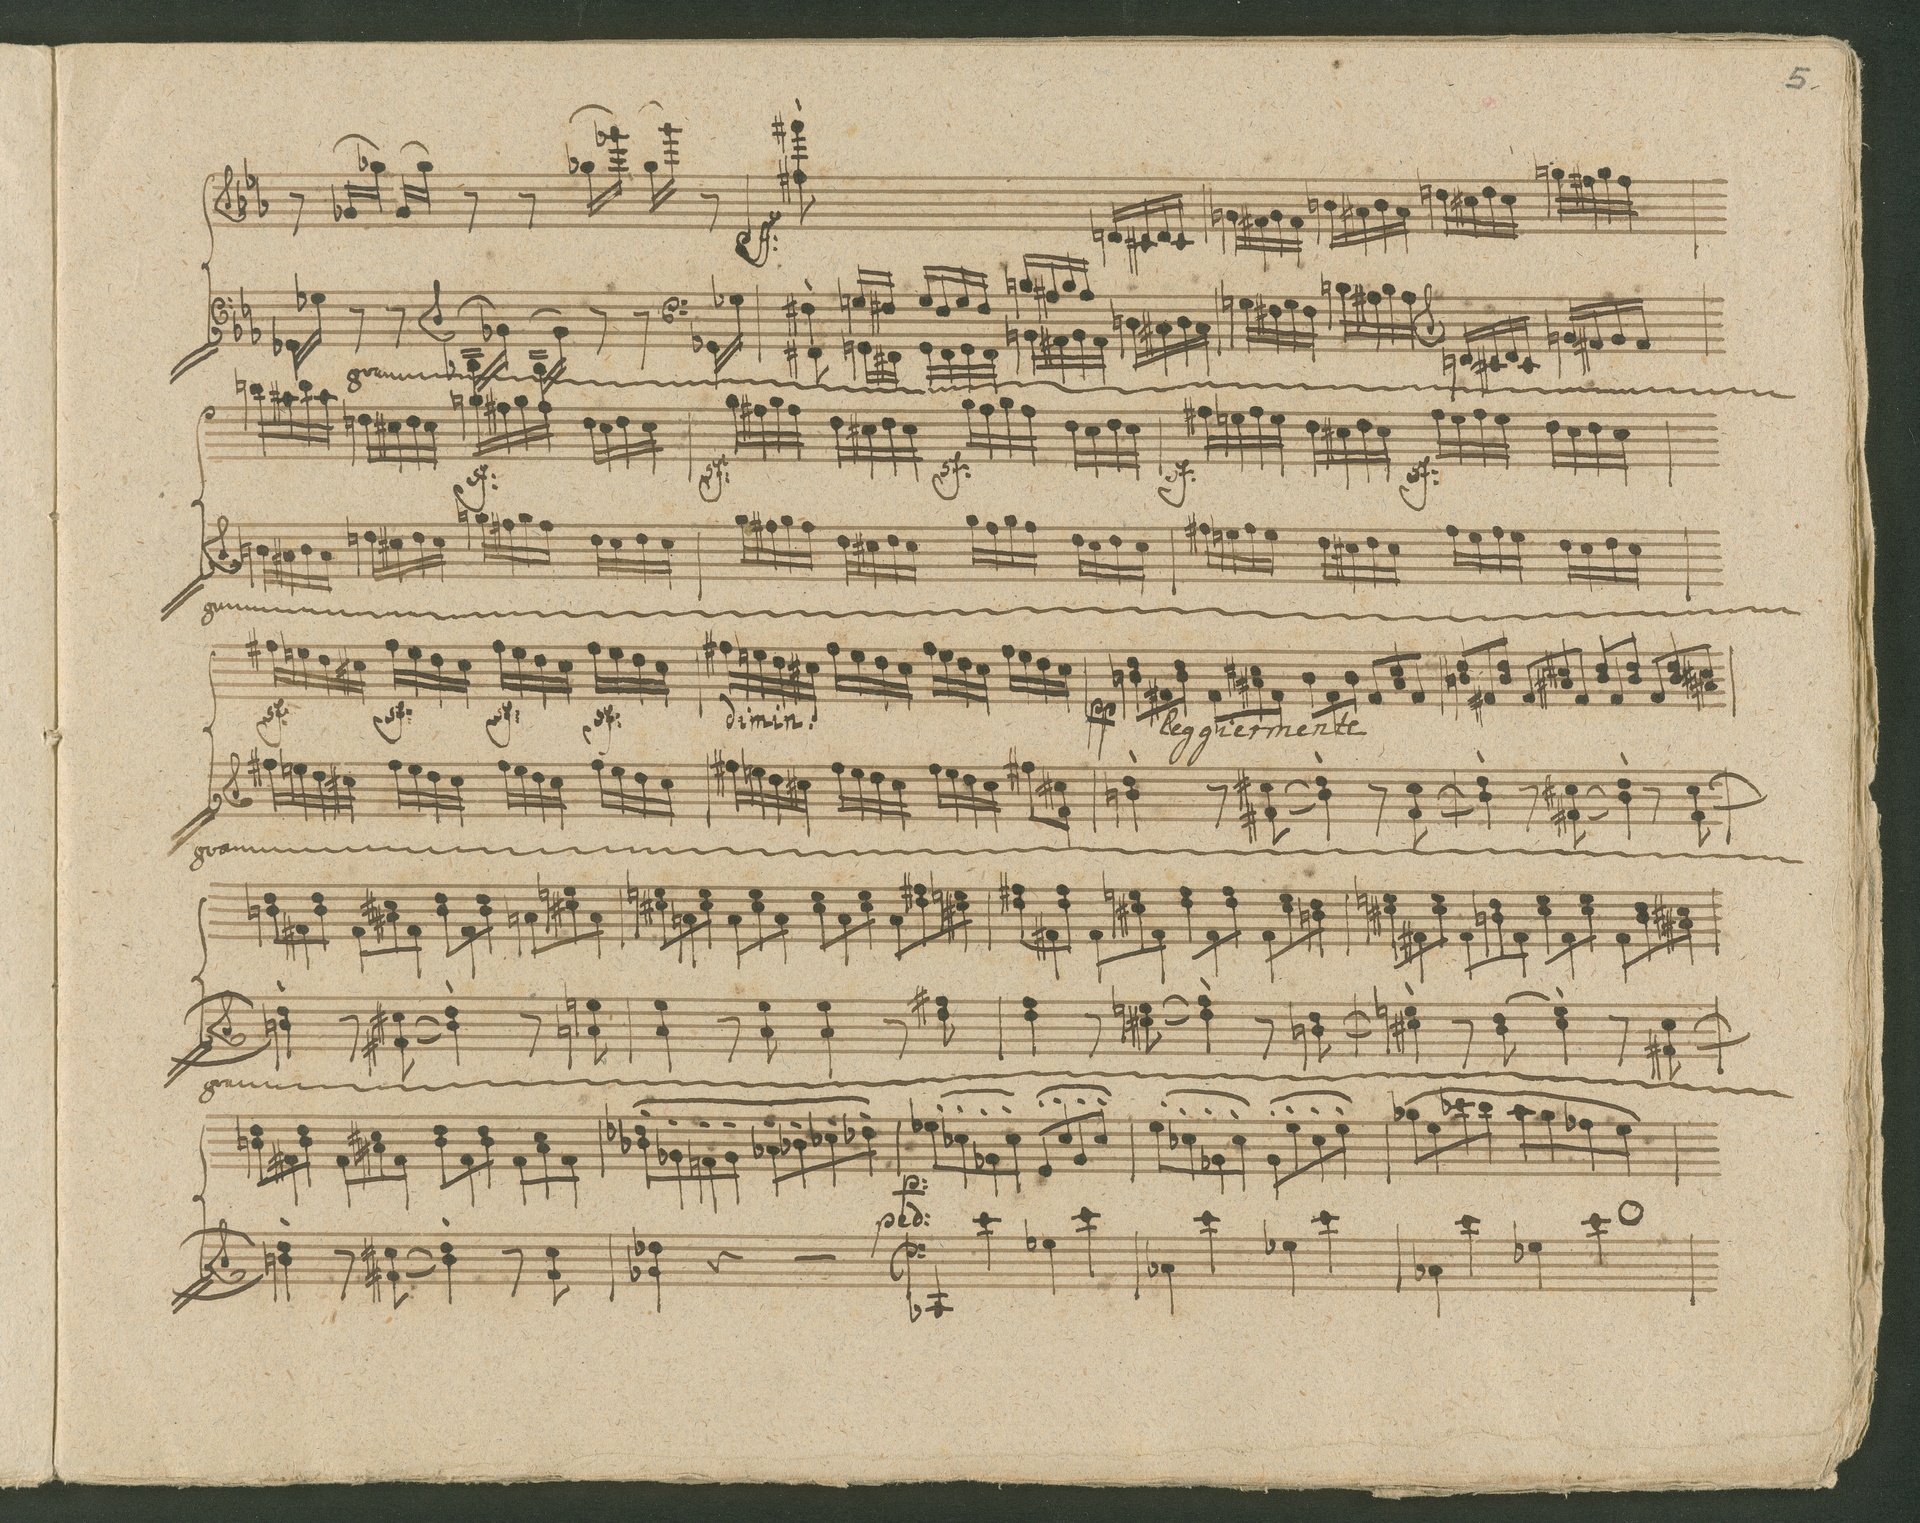 5.
sf:
8va
sf: sf: sf: sf: sf:
8va
sf: sf: sf: sf: dimin: pp leggiermente
8va
8va
p:
ped:
p: